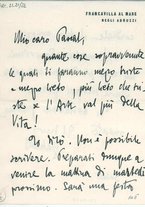 FRANCAVILLA AL MARE
NEGLI ABRUZZI
Mio caro
quante cose sopravvenute
le quali ti faranno meno triste
e meno lieto, più lieto che tri-
ste se l'Arte val più della
Vita!
Ti dirò. Non è possibile
scrivere. Preparati dunque a
venire la mattina di martedì
prossimo. Sarà una festa